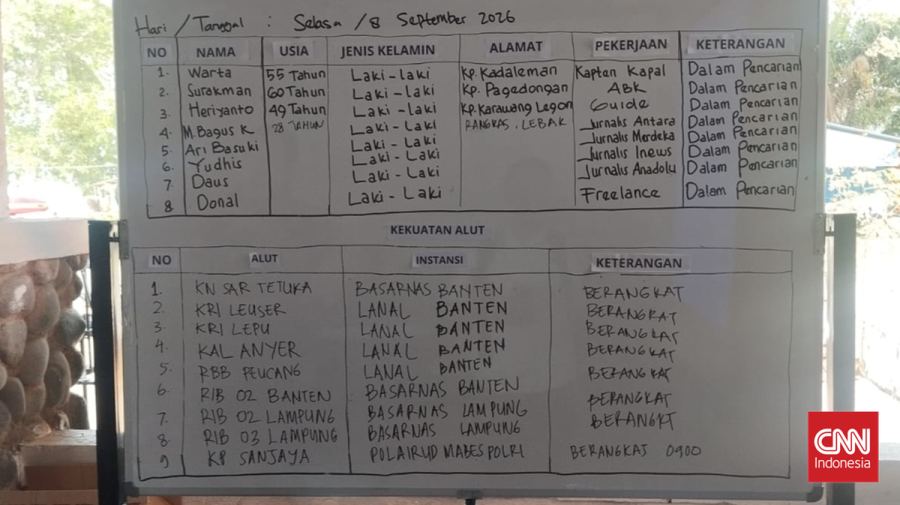 Hari / Tanggal : Selasa / 8 September 2026
NO NAMA USIA JENIS KELAMIN ALAMAT PEKERJAAN KETERANGAN
1. Warta 55 Tahun Laki-laki Kp. Kadaleman Kapten Kapal Dalam Pencarian
2. Surakman 60 Tahun Laki-laki Kp. Pagedongan ABK Dalam Pencarian
3. Heriyanto 49 Tahun Laki-laki Kp. Karawang Legon Guide Dalam Pencarian
4. M. Bagus K 28 TAHUN Laki-Laki RANGKAS, LEBAK Jurnalis Antara Dalam Pencarian
5. Ari Basuki Laki-Laki Jurnalis Merdeka Dalam Pencarian
6. Yudhis Laki-Laki Jurnalis Inews Dalam Pencarian
7 Daus Laki-Laki Jurnalis Anadolu Dalam Pencarian
8 Donal Laki-Laki Freelance Dalam Pencarian
KEKUATAN ALUT
NO ALUT INSTANSI KETERANGAN
1. KN SAR TETUKA BASARNAS BANTEN BERANGKAT
2. KRI LEUSER LANAL BANTEN BERANGKAT
3. KRI LEPU LANAL BANTEN BERANGKAT
4. KAL ANYER LANAL BANTEN BERANGKAT
5. RBB PEUCANG LANAL BANTEN BERANGKAT
6. RIB 02 BANTEN BASARNAS BANTEN BERANGKAT
7. RIB 02 LAMPUNG BASARNAS LAMPUNG BERANGKT
8 RIB 03 LAMPUNG BASARNAS LAMPUNG
9 KP SANJAYA POLAIRUD MABES POLRI BERANGKAT 0900
CNN
Indonesia